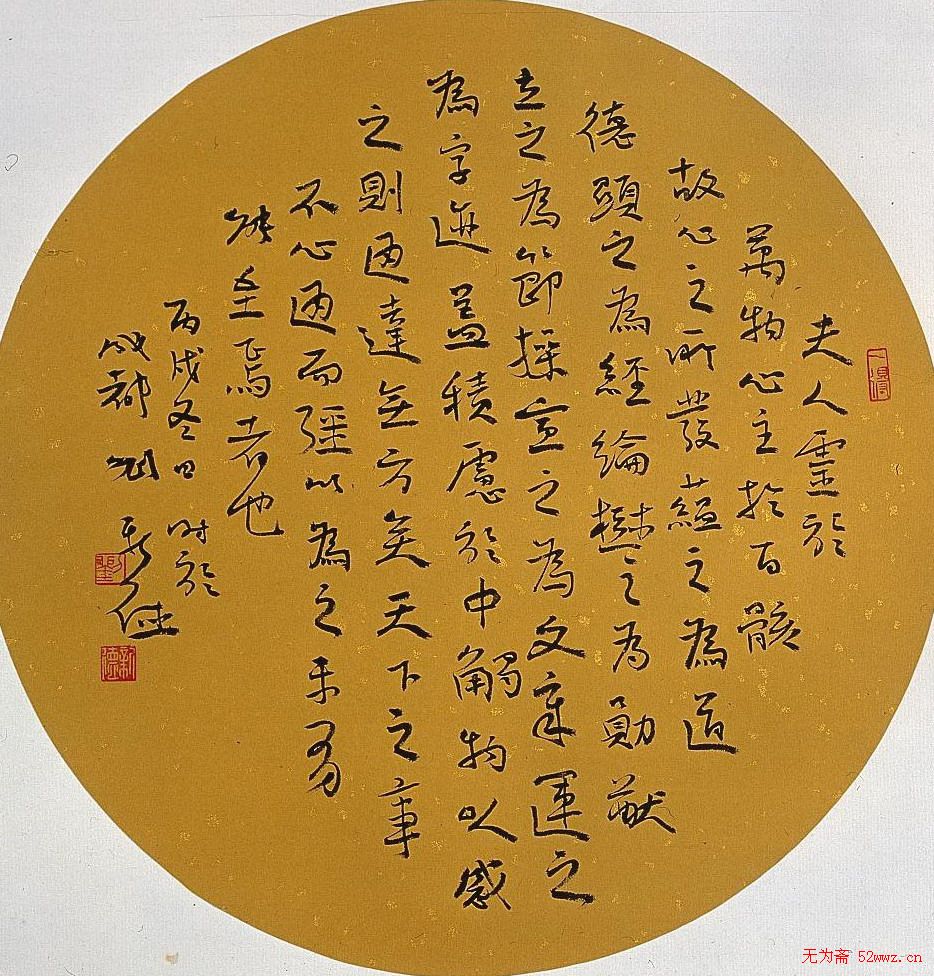 夫人靈於
萬物心主於百骸
故心之所發蘊之為道
德顯之為經綸樹之為勛猷
立之為節操宣之為文章運之
為字迹蓋積慮於中觸物以感
之則通達無方矣天下之事
不心通而強以為之未有
能至焉者也
丙戌冬日時於
成都劉新德
新德
无为斋 52wwz.cn